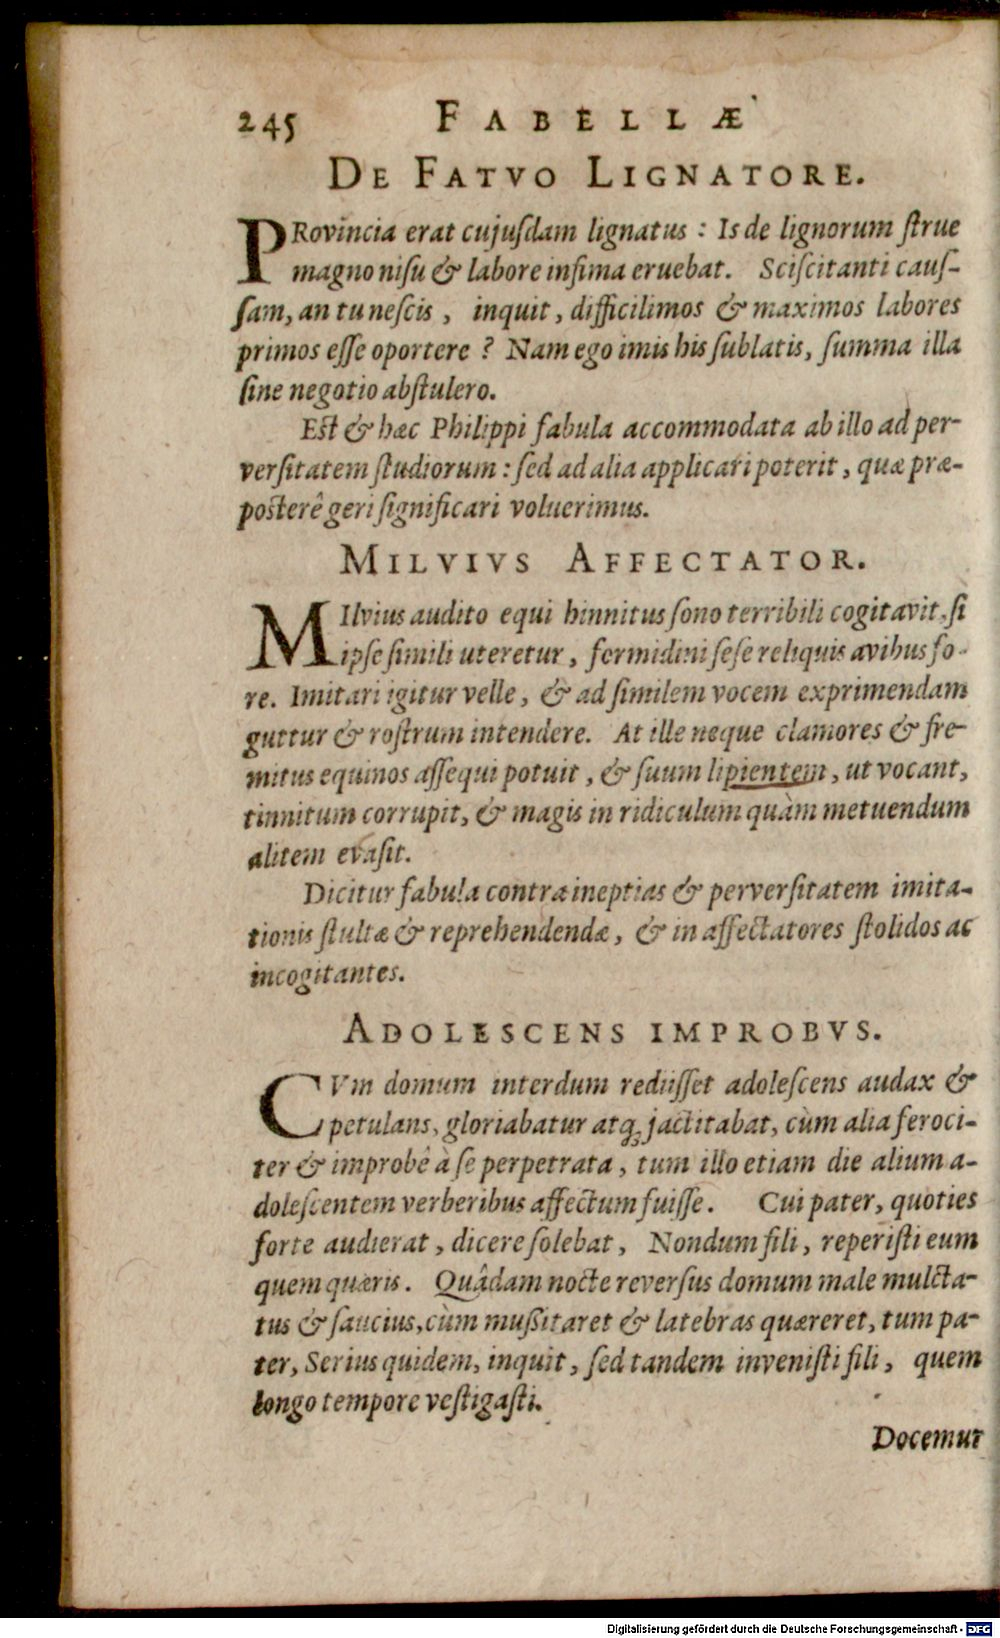 245 FABELLÆ
DE FATVO LIGNATORE.
PRovincia erat cujuſdam lignatus : Is de lignorum ſtrue
magno niſu & labore inſima eruebat. Sciſcitanti cauſ-
ſam, an tu neſcis, inquit, difficilimos & maximos labores
primos eſſe oportere ? Nam ego imis his ſublatis, ſumma illa
ſine negotio abſtulero.
Est & hæc Philippi fabula accommodata ab illo ad per-
verſitatem ſtudiorum : ſed ad alia applicari poterit, quæ præ-
posterê geri ſignificari voluerimus.
MILVIVS AFFECTATOR.
MIlvius audito equi hinnitus ſono terribili cogitavit, ſi
ipſe ſimili uteretur, formidini ſeſe reliquis avibus fo-
re. Imitari igitur velle, & ad ſimilem vocem exprimendam
guttur & roſtrum intendere. At ille neque clamores & fre-
mitus equinos aſſequi potuit, & ſuum lipientem, ut vocant,
tinnitum corrupit, & magis in ridiculum quàm metuendum
alitem evaſit.
Dicitur fabula contra ineptias & perverſitatem imita-
tionis ſtultæ & reprehendendæ, & in affectatores ſtolidos ac
incogitantes.
ADOLESCENS IMPROBVS.
CVm domum interdum rediiſſet adoleſcens audax &
petulans, gloriabatur atq; jactitabat, cùm alia feroci-
ter & improbê à ſe perpetrata, tum illo etiam die alium a-
doleſcentem verberibus affectum fuiſſe. Cui pater, quoties
forte audierat, dicere ſolebat, Nondum fili, reperiſti eum
quem quæris. Quâdam nocte reverſus domum male mulcta-
tus & ſaucius, cùm muſsitaret & latebras quæreret, tum pa-
ter, Serius quidem, inquit, ſed tandem inveniſti fili, quem
longo tempore veſtigaſti.
Docemur
Digitalisierung gefördert durch die Deutsche Forschungsgemeinschaft - DFG